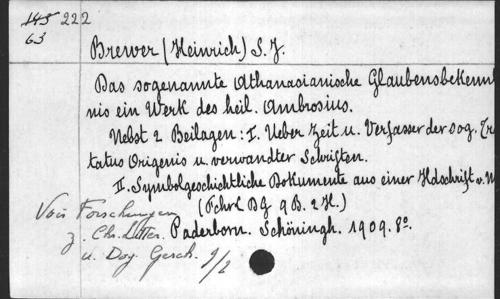 145 222
63
Brewer (Heinrich) S. J.
Das sogenannte Athanasianische Glaubensbekennt
nis ein Werk des heil. Ambrosius.
Nebst 2 Beilagen: I. Ueber Zeit u. Verfasser der sog. Tra
tatus Origenis u. verwandter Schriften.
II. Symbolgeschichtliche Dokumente aus einer Hdschrift v. M
(Fchrl DG 9B. 2 H.)
Paderborn. Schöningh. 1909. 8°.
Forschungen
z. Chr. Litter.
u. Dog. Gesch. 9/2